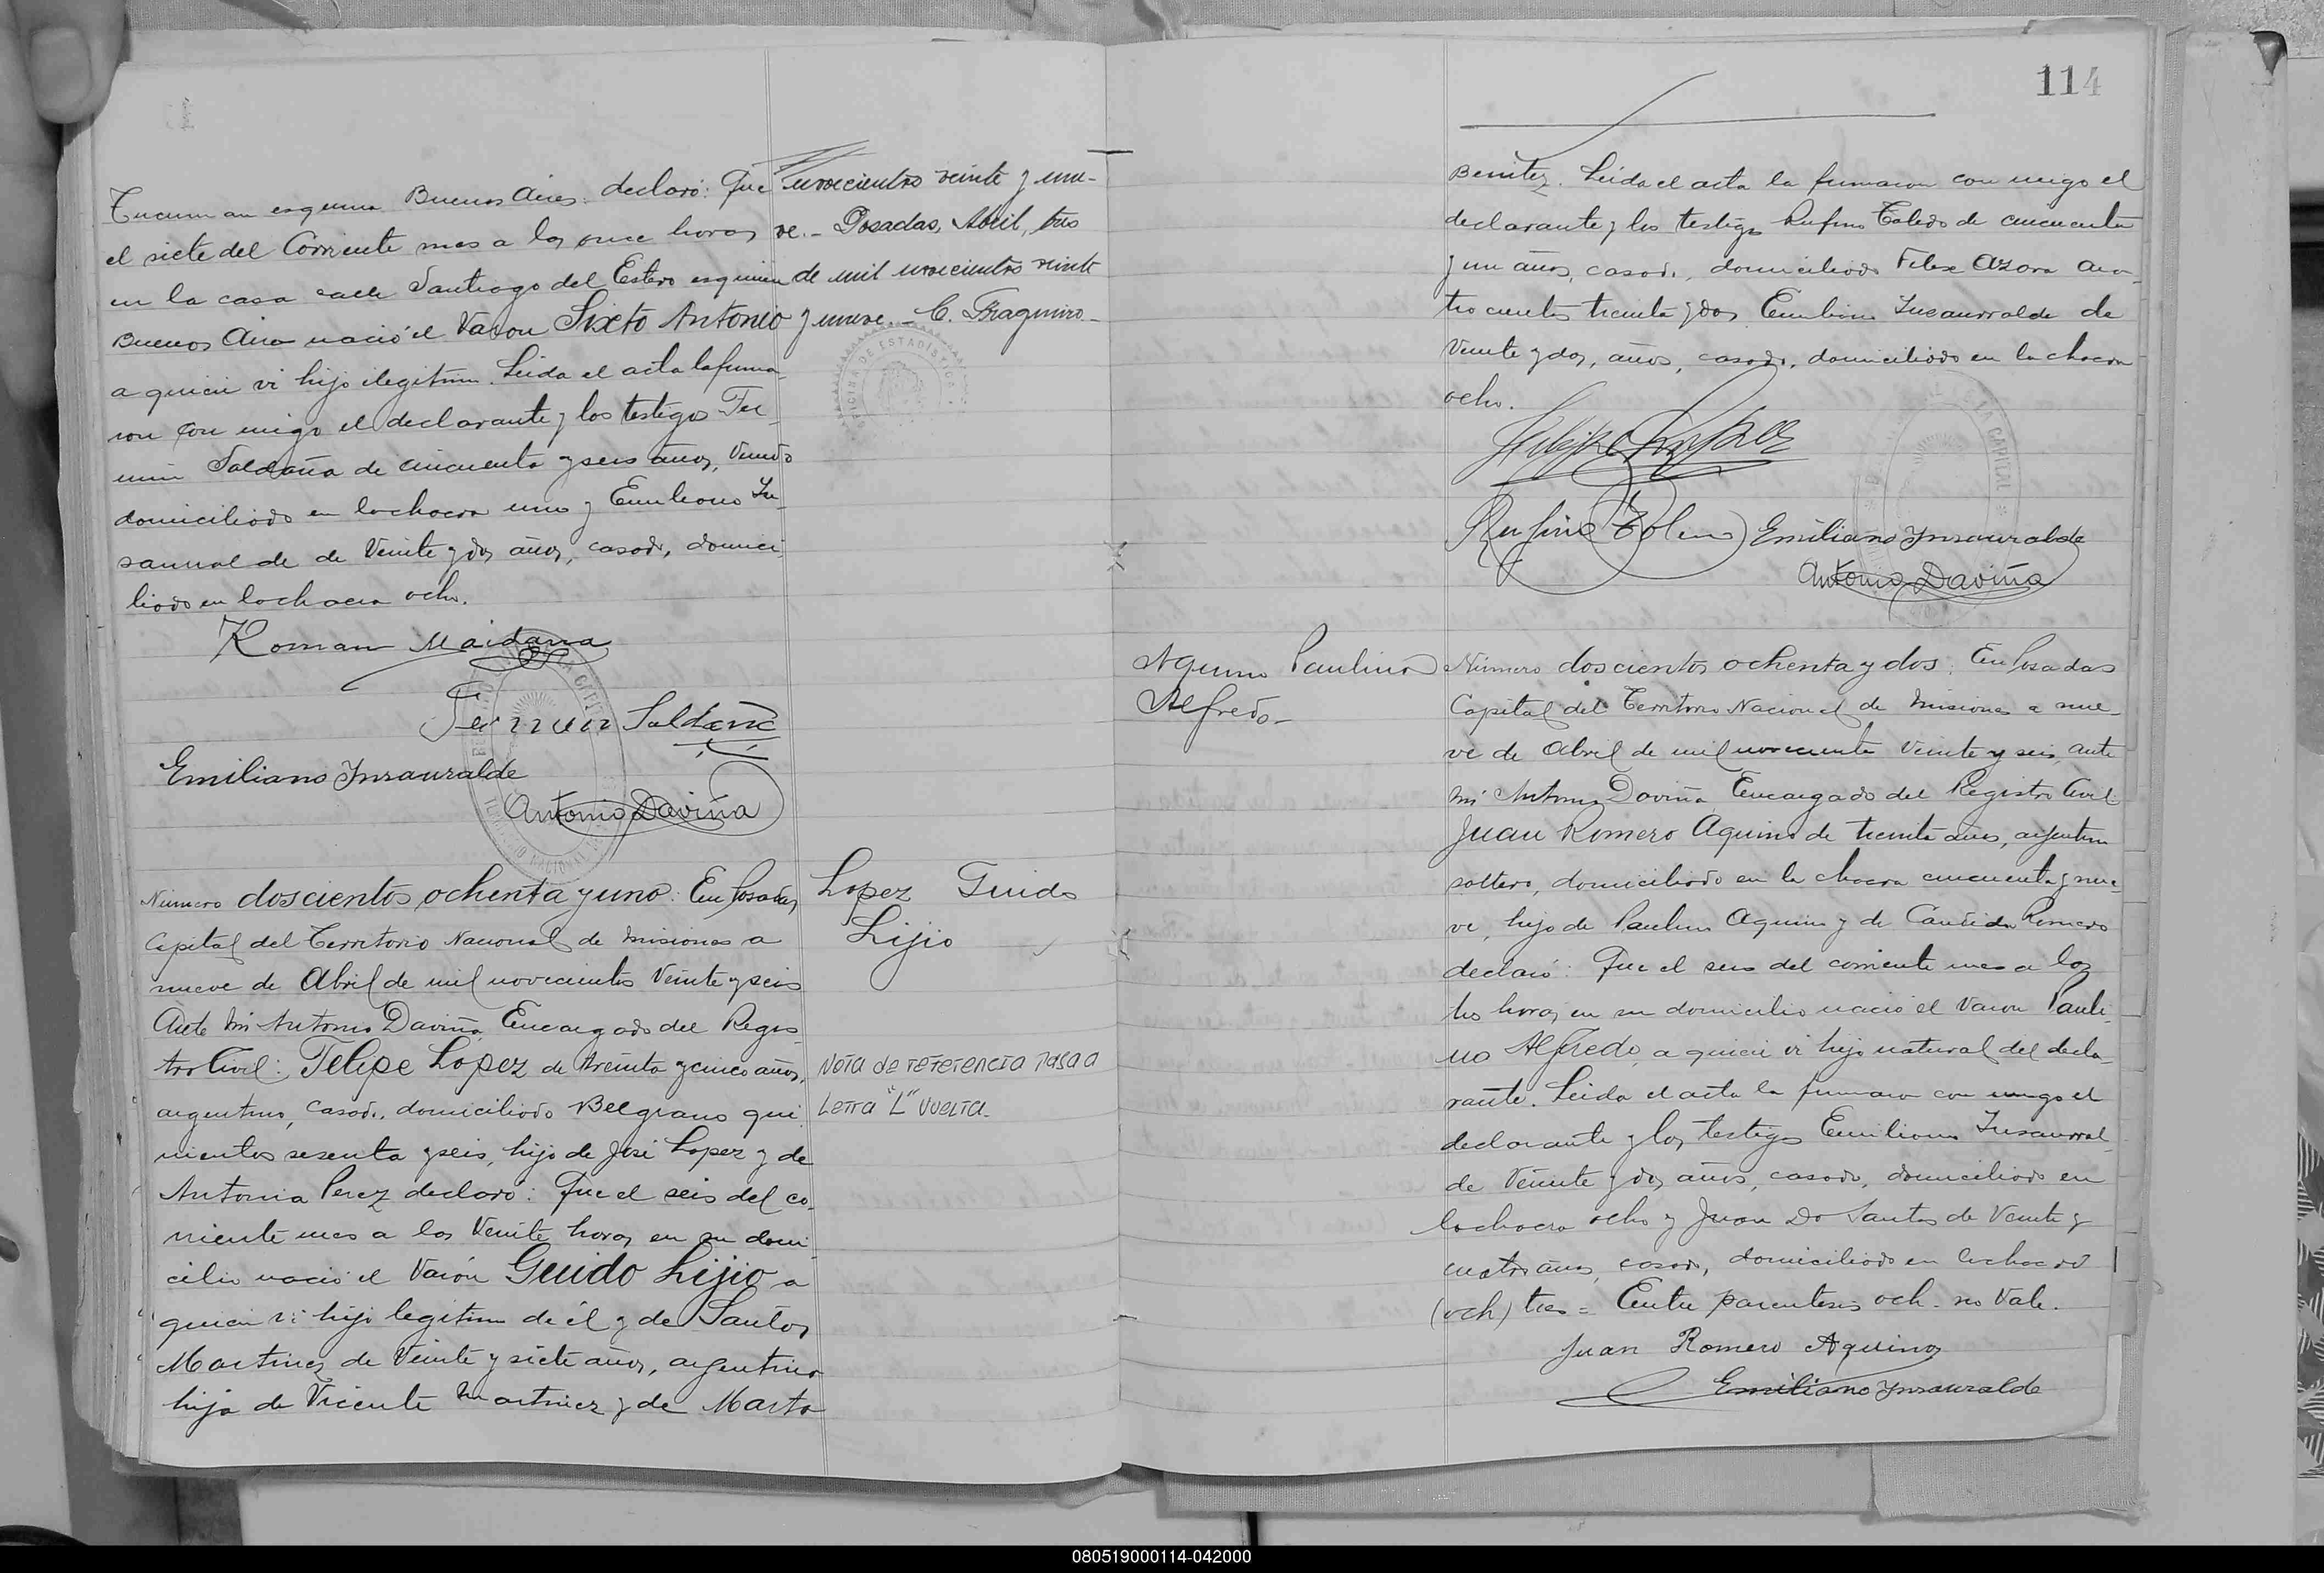 Tucuman esquina Buenos Aires: declaró: Que
el siete del Corriente mes a las once horas
en la casa calle Santiago del Estero esquina
Buenos Aires nació el Varon Sixto Antonio
a quien vi hijo ilegitimo. Leida el acta la firma-
ron con migo el declarante y los testigos Fer-
min Saldaña de cincuenta y seis años, Viudo
domiciliado en la chacra uno y Emiliano In-
saurralde de Veinte y dos años, casado, domici-
liado en la chacra ocho.
Roman Maidana
Fermin Saldaña
Emiliano Insauralde
Antonio Daviña
novecientos veinte y nue-
ve.- Posadas, Abril, tres
de mil novecientos veinte
y nueve.- C. Fragueiro.-
OFICINA DE ESTADISTICA
Número doscientos ochenta y uno: En Posadas,
Capital del Territorio Nacional de Misiones a
nueve de Abril de mil novecientos Veinte y seis
Ante Mi Antonio Daviña, Encargado del Regis-
tro Civil: Felipe Lopez de treinta y cinco años,
argentino, casado, domiciliado Belgrano qui-
nientos sesenta y seis, hijo de José Lopez y de
Antonia Perez declaró: Que el seis del co-
rriente mes a las Veinte horas en su domi-
cilio nació el Varón Guido Lijio a
quien vi hijo legitimo de él y de Santos
Martinez de Veinte y siete años, argentina
hija de Vicente Martinez y de Marta
Lopez Guido
Lijio
Nota de referencia pasa a
Letra "L" vuelta.
114
Benitez. Leida el acta la firmaron con migo el
declarante y los testigos Rufino Toledo de cincuenta
y un años, casado, domiciliado Felix Azara cua-
trocientos treinta y dos Emiliano Insaurralde de
Veinte y dos, años, casado, domiciliado en la chacra
ocho.
Felipe Lopez
Rufino Toledo Emiliano Insauralde
Antonio Daviña
Aquino Paulino
Alfredo-
Número doscientos ochenta y dos: En Posadas
Capital del Territorio Nacional de Misiones a nue-
ve de Abril de mil novecientos Veinte y seis, ante
Mi Antonio Daviña Encargado del Registro Civil
Juan Romero Aquino de treinta años, argentino
soltero, domiciliado en la chacra cincuenta y nue-
ve, hijo de Paulino Aquino y de Candida Romero
declaró: Que el seis del corriente mes a las
tres horas en su domicilio nació el Varon Pauli-
no Alfredo, a quien vi hijo natural del decla-
rante. Leida el acta la firmaron con migo el
declarante y los testigos Emiliano Insaurral-
de Veinte y dos años, casado, domiciliado en
la chacra ocho y Juan Do Santos de Veinte y
cuatro años, casado, domiciliado en la chacra
(och) tres = Entre parentesis och. no Vale.
Juan Romero Aquino
Emiliano Insauralde
080519000114-042000